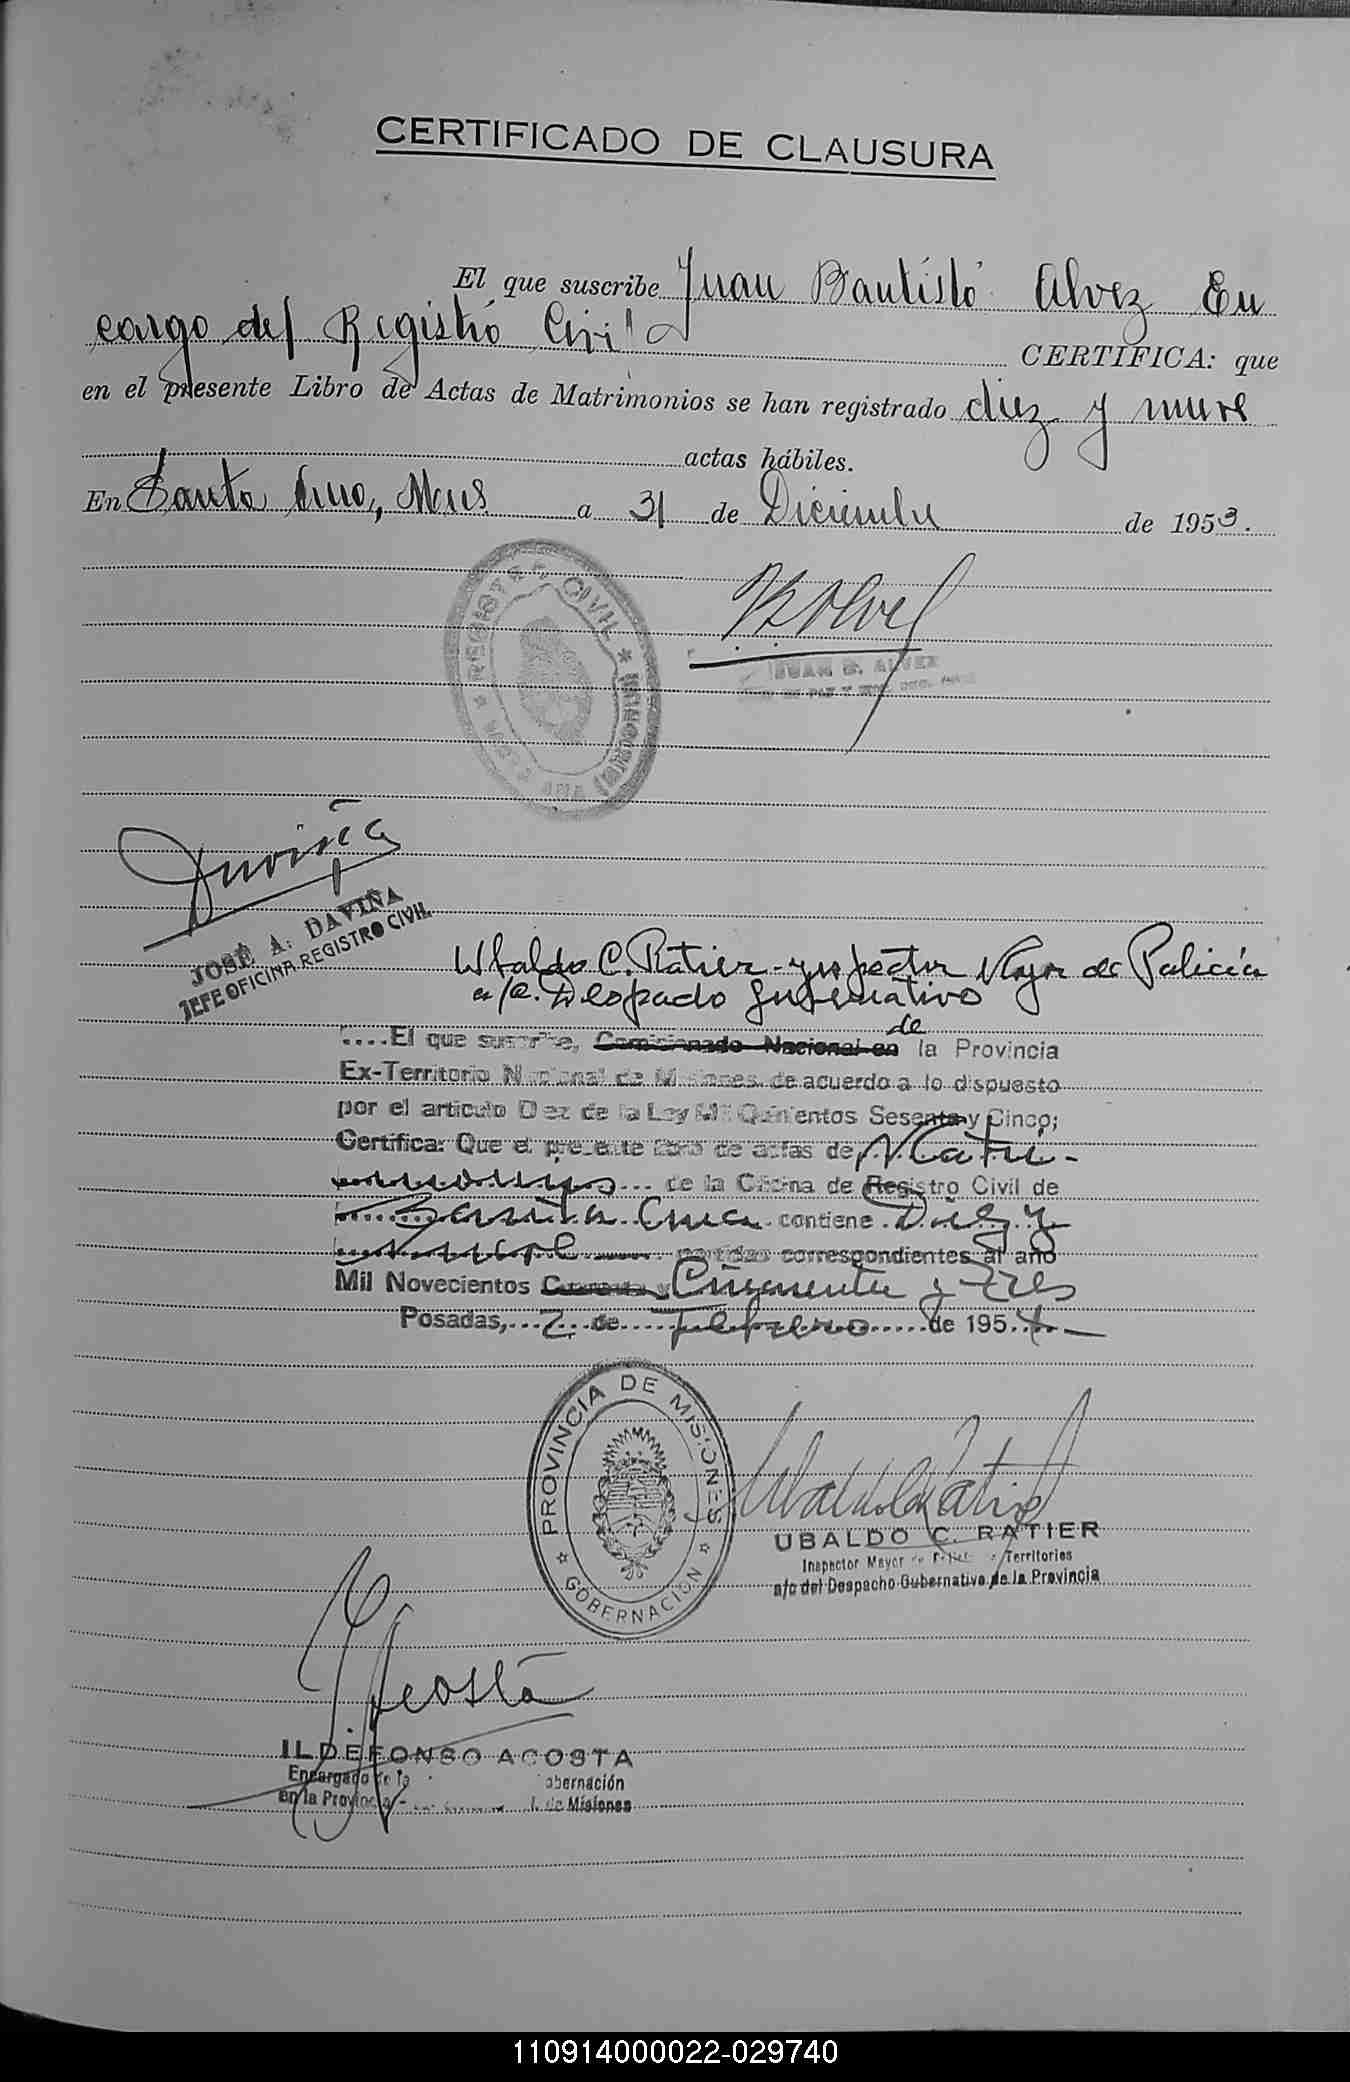 CERTIFICADO DE CLAUSURA
El que suscribe Juan Bautista Alvez En
cargo del Registro Civil
CERTIFICA: que
en el presente Libro de Actas de Matrimonios se han registrado diez y nueve
actas hábiles.
En Santa Ana, Mnes a 31 de Diciembre de 1953.
REGISTRO CIVIL * (MISIONES) ANA
JUAN B. ALVEZ
DE PAZ Y
Daviña
JOSÉ A. DAVIÑA
JEFE OFICINA REGISTRO CIVIL
Ubaldo C. Ratier - Inspector Mayor de Policía
a/c. Despacho Gubernativo
....El que suscribe, Comisionado Nacional en de la Provincia
Ex-Territorio Nacional de Misiones de acuerdo a lo dispuesto
por el articulo Diez de la Ley Mil Quinientos Sesenta y Cinco;
Certifica: Que el presente libro de actas de Matri-
monios... de la Oficina de Registro Civil de
Santa Ana contiene Diez y
nueve partidas correspondientes al año
Mil Novecientos Cuarenta y Cincuenta y Tres
Posadas, 2 de Febrero de 1954.-
PROVINCIA DE MISIONES
* GOBERNACION *
Ubaldo C. Ratier
UBALDO C. RATIER
Inspector Mayor de Territorios
a/c del Despacho Gubernativo de la Provincia
I. Acosta
ILDEFONSO ACOSTA
Encargado de la Gobernación
en la Provincia de Misiones
110914000022-029740